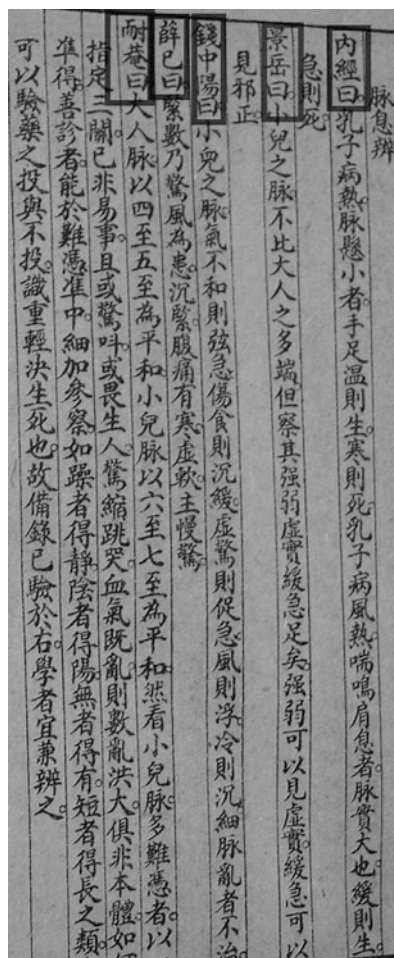 脉息辨
內經曰。乳子病熱。脉懸小者。手足温則生。寒則死。乳子病風熱。喘鳴肩息者。脉實大也。緩則生。
急則死。
景岳曰。小兒之脉。不比大人之多端。但察其强弱虛實緩急足矣。强弱可以見虛實。緩急可以
見邪正。
錢中陽曰。小兒之脉。氣不和則弦急。傷食則沉緩。虛驚則促急。風則浮。冷則沉細。脉亂者不治。
薛已曰。緊數乃驚風為患。沉緊腹痛有寒。虛軟。主慢驚。
耐菴曰。大人脉。以四至五至為平和。小兒脉。以六至七至為平和。然看小兒脉。多難憑者。以
指定三關。已非易事。且或驚呌。或畏生人。驚縮跳哭。血氣既亂。則數亂洪大。俱非本體。如
準得。善診者。能於難憑準中。細加參察。如躁者得靜。陰者得陽。無者得有。短者得長之類。
可以驗藥之投與不投。識重輕決生死也。故備錄已驗於右。學者宜兼辨之。